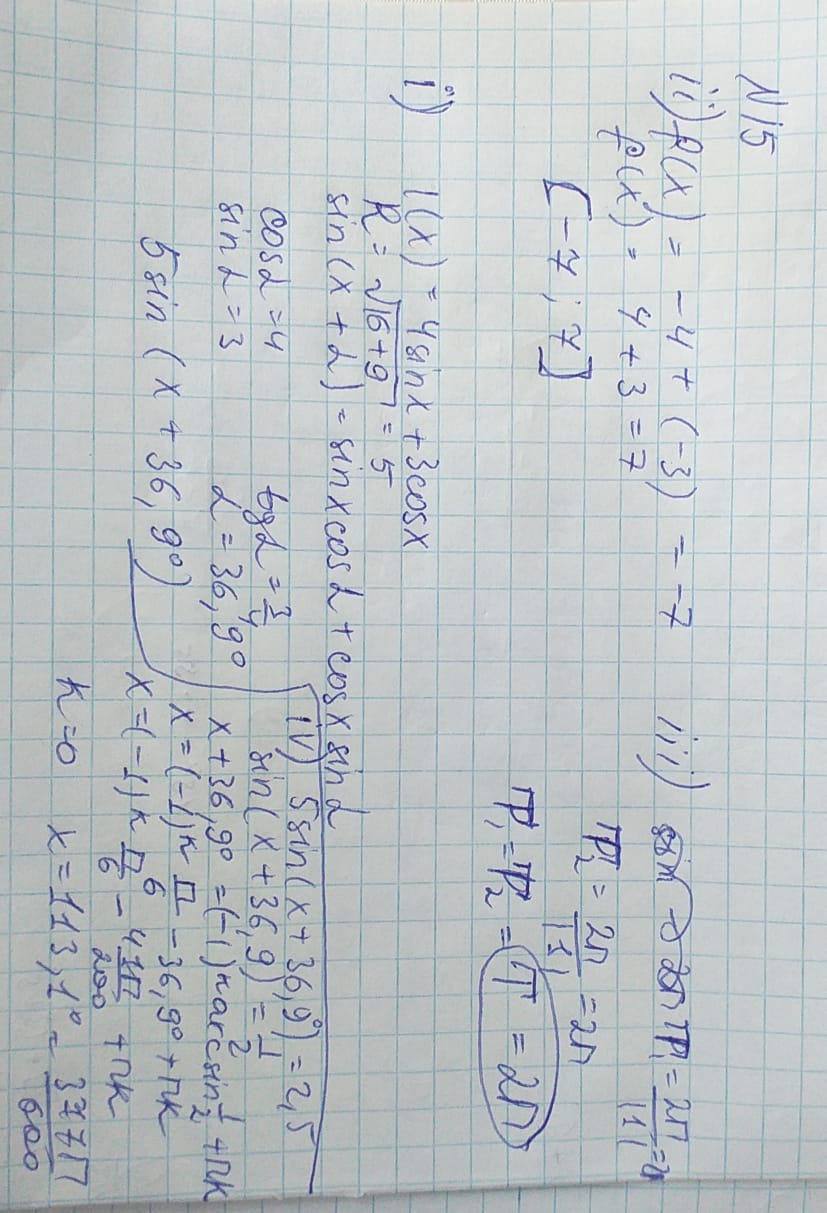 N15
ii) f(x) = -4 + (-3) = -7
f(x) = 4 + 3 = 7
[-7; 7]
iii) sin → 2π T₁ = 2π/|1| = 2π
T₂ = 2π/|1| = 2π
T₁ = T₂ = T = 2π
i) f(x) = 4sinx + 3cosx
R = √16+9 = 5
sin(x + α) = sinxcosα + cosxsinα
cosα = 4
sinα = 3
tgα = 3/4
α = 36,9°
5sin(x + 36,9°)
iv) 5sin(x + 36,9°) = 2,5
sin(x + 36,9) = 1/2
x + 36,9° = (-1)ᵏarcsin 1/2 + πk
x = (-1)ᵏ π/6 - 36,9° + πk
x = (-1)ᵏ π/6 - 41π/200 + πk
k=0 x = 113,1° = 377π/600